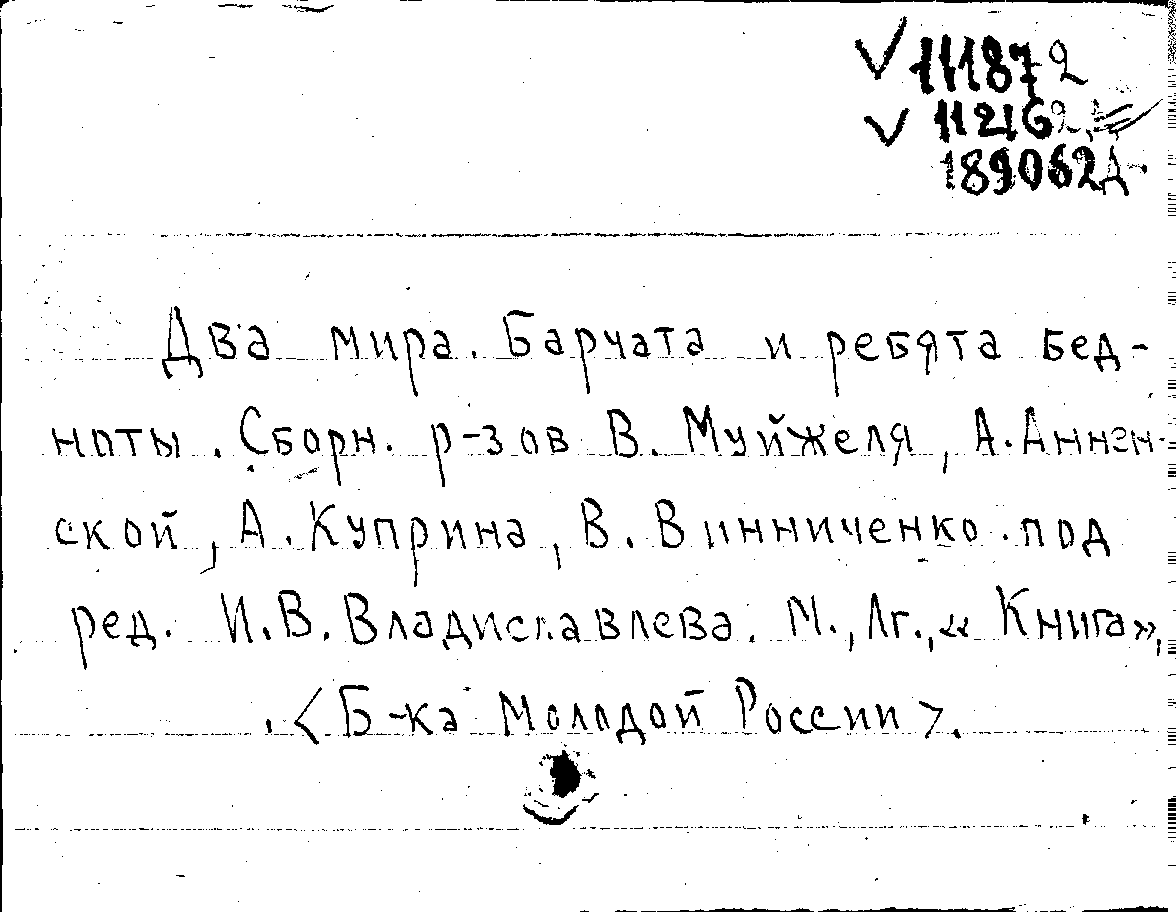 √ 111872
√ 112162
189062Д
Два мира. Барчата и ребята бед-
ноты. Сборн. р-зов В. Муйжеля, А. Аннен-
ской, А. Куприна, В. Винниченко. под
ред. И.В. Владиславлева. М., Лг., «Книга»,
<Б-ка Молодой России>.